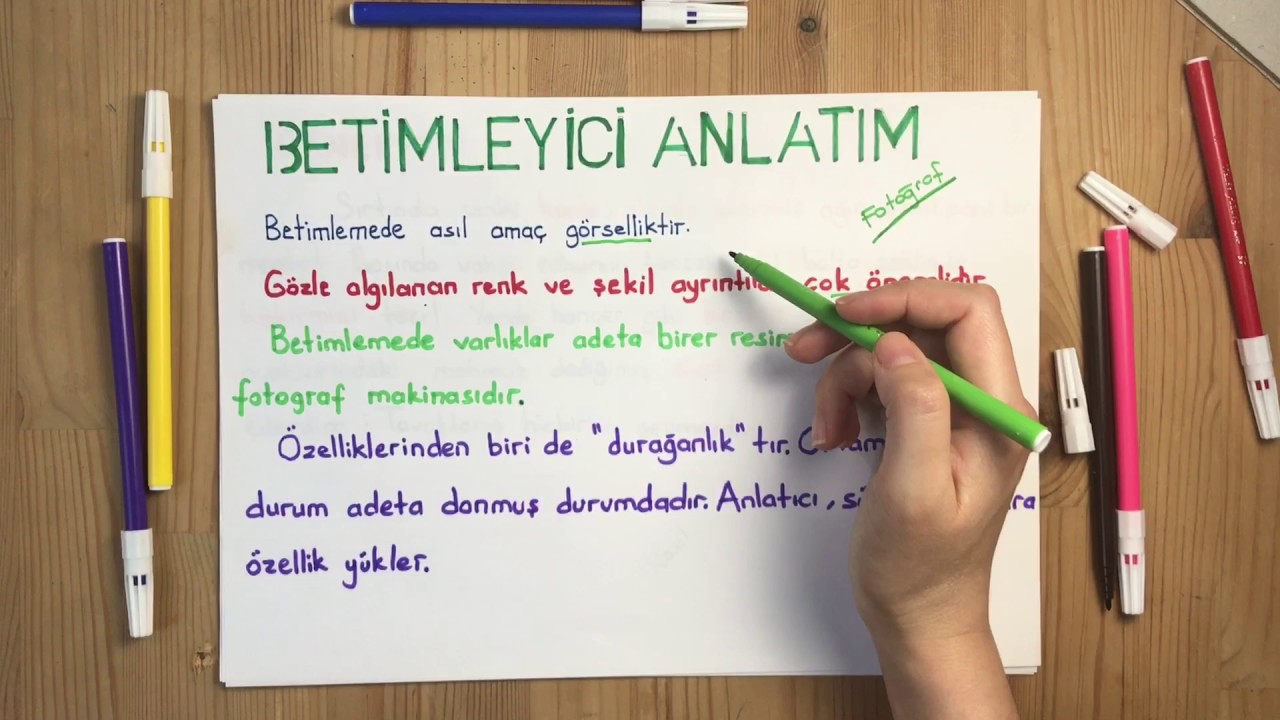 BETİMLEYİCİ ANLATIM
Fotoğraf
Betimlemede asıl amaç görselliktir.
Gözle algılanan renk ve şekil çok
Betimlemede varlıklar adeta birer
fotograf makinasıdır.
Özelliklerinden biri de "durağanlık"tır.
durum adeta donmuş durumdadır. Anlatıcı,
özellik yükler.